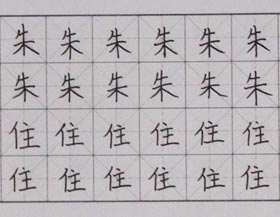 朱朱朱朱朱朱
朱朱朱朱朱朱
住住住住住住
住住住住住住